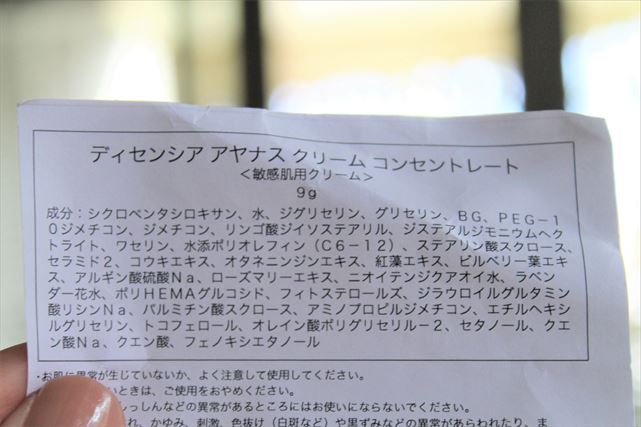 ディセンシア アヤナス クリーム コンセントレート
＜敏感肌用クリーム＞
9g
成分：シクロペンタシロキサン、水、ジグリセリン、グリセリン、BG、PEG-1
0ジメチコン、ジメチコン、リンゴ酸ジイソステアリル、ジステアルジモニウムヘクト
ライト、ワセリン、水添ポリオレフィン（C6-12）、ステアリン酸スクロース、
セラミド2、コウキエキス、オタネニンジンエキス、紅藻エキス、ビルベリー葉エキ
ス、アルギン酸硫酸Na、ローズマリーエキス、ニオイテンジクアオイ水、ラベン
ダー花水、ポリHEMAグルコシド、フィトステロールズ、ジラウロイルグルタミン
酸リシンNa、パルミチン酸スクロース、アミノプロピルジメチコン、エチルヘキシ
ルグリセリン、トコフェロール、オレイン酸ポリグリセリル-2、セタノール、クエ
ン酸Na、クエン酸、フェノキシエタノール
・お肌に異常が生じていないか、よく注意して使用してください。
いときは、ご使用をおやめください。
しっしんなどの異常があるところにはお使いにならないでください。
れ、かゆみ、刺激、色抜け（白斑など）や黒ずみなどの異常があらわれたり、ま